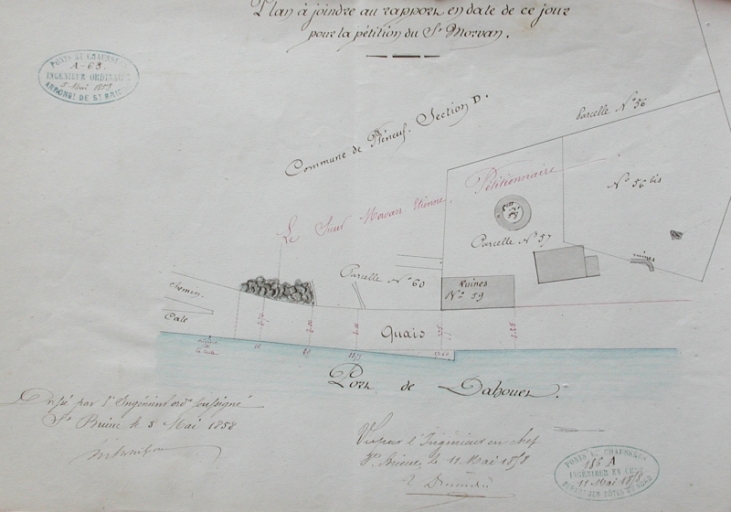 Plan à joindre au rapport en date de ce jour
pour la pétition du Sr Morvan.
PONTS ET CHAUSSÉES
A-63.
INGÉNIEUR ORDINAIRE
5 Mai 1858
ARRONDT DE ST BRIEUC
Commune de Pléneuf. Section D.
Parcelle No 56
No 56 bis
Le Sieur Morvan Etienne, Pétitionnaire
Parcelle No 57
ruines
Parcelle No 60
Ruines
No 59
chemin.
Cale
Quais
Port de Dahouet.
Dressé par l'Ingénieur ordre soussigné
St Brieuc le 5 Mai 1858
Vu par l'Ingénieur en chef
St Brieuc, le 11 Mai 1858
PONTS ET CHAUSSÉES
186 A
INGÉNIEUR EN CHEF
11 Mai 1858
DES CÔTES DU NORD